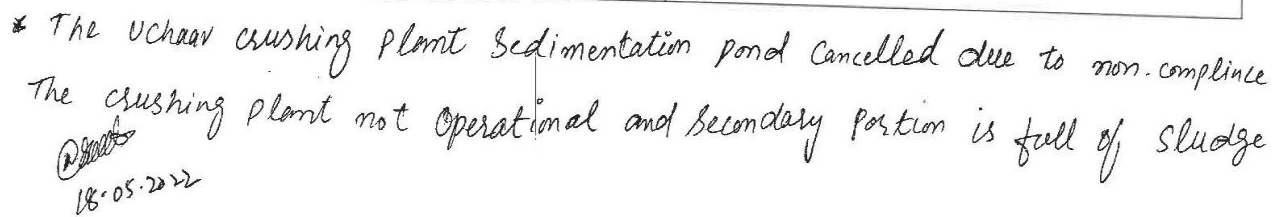 * The Uchaav crushing plant Sedimentation pond Cancelled due to non-complince
The crushing plant not operational and secondary portion is full of sludge
18.05.2022